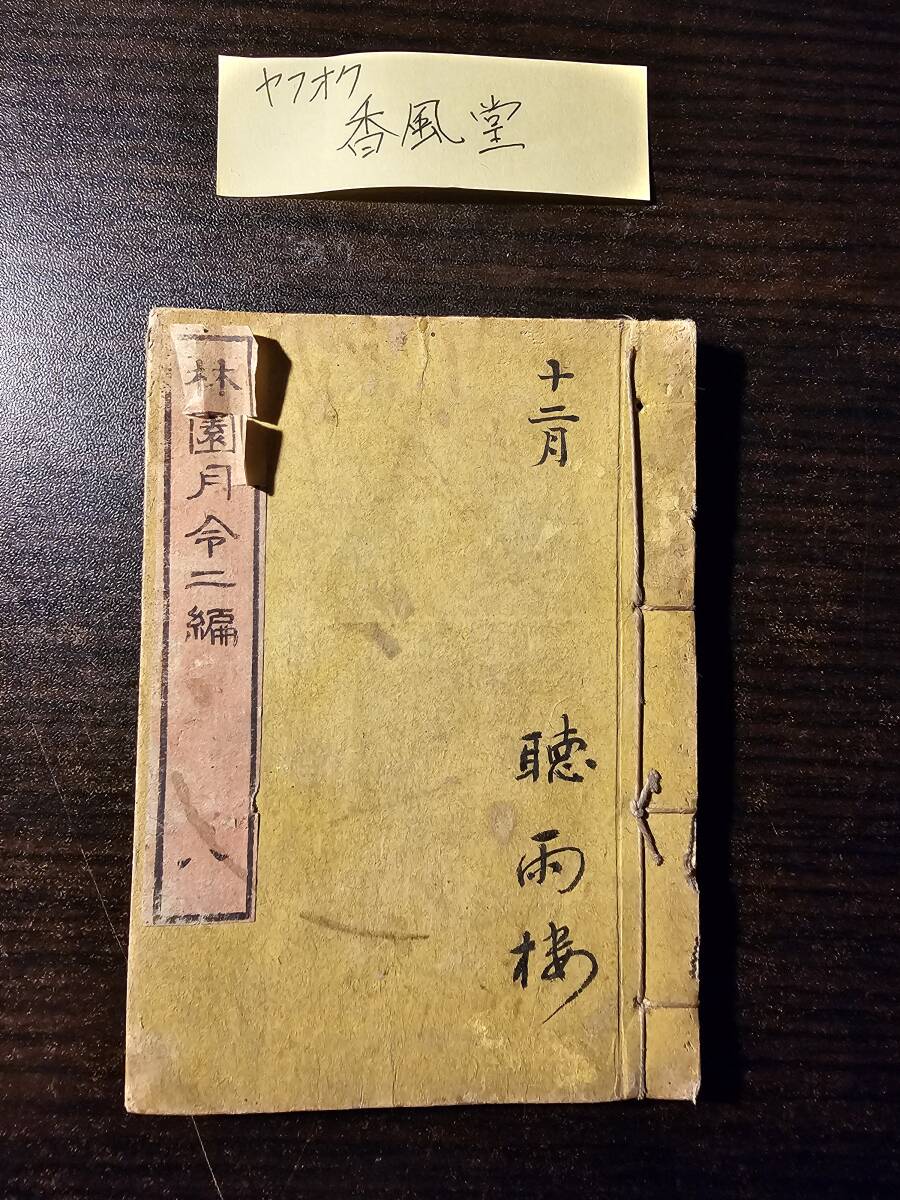 ヤフオク
香風堂
十二月
聴雨楼
林園月令二編
八